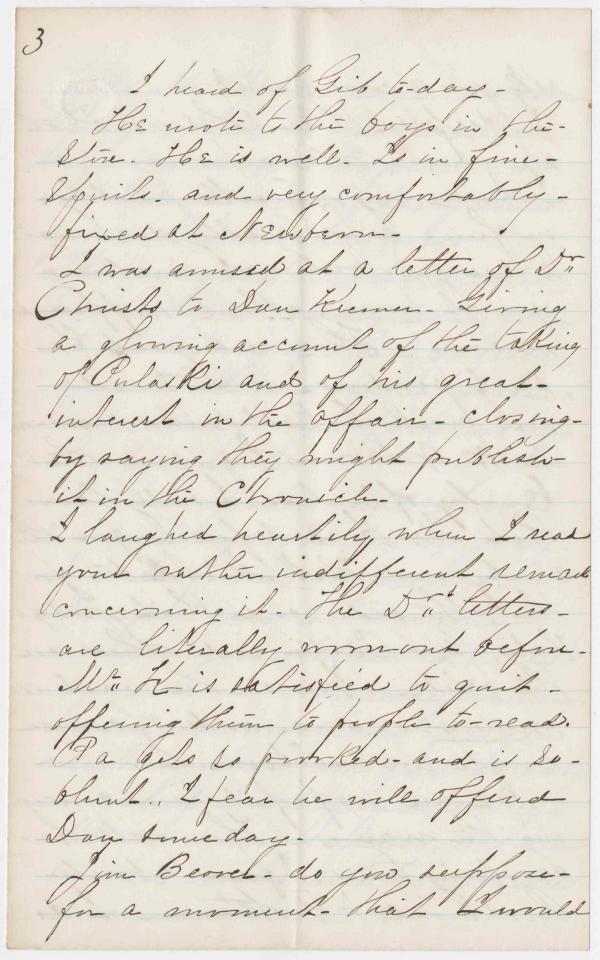 3
I heard of Gib to-day-
He wrote to the boys in the-
Store. He is well. Is in fine-
Spirits. and very comfortably-
fixed at Newbern-
I was amused at a letter of Dr"
Christs to Dan Kremer. Giving
a glowing account of the taking
of Pulaski and of his great-
interest in the affair- closing-
by saying they might publish-
it in the Chronicle-
I laughed heartily when I read
your rather indifferent remark
concerning it. The Dr"s letters-
are literally wornout before-
Mr" K is satisfied to quit-
offering them to people to-read.
Pa gets so provoked- and is so-
blunt., I fear he will offend
Dan someday-
Jim Beaver- do you suppose-
for a moment- that I would